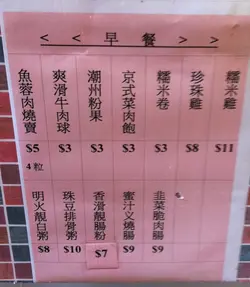 < < 早餐 > >
魚蓉肉燒賣
爽滑牛肉球
潮州粉果
京式菜肉飽
糯米卷
珍珠雞
糯米雞
$5
$3
$3
$3
$3
$8
$11
4 粒
明火靚白粥
珠豆排骨粥
香滑靚腸粉
蜜汁叉燒腸
韭菜脆肉腸
$8
$10
$7
$9
$9